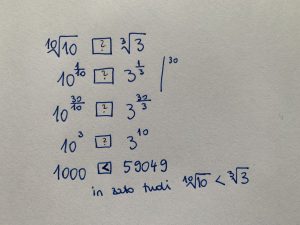 ¹⁰√10 [?] ³√3
10^(1/10) [?] 3^(1/3) |30
10^(30/10) [?] 3^(30/3)
10³ [?] 3¹⁰
1000 [<] 59049
in zato tudi ¹⁰√10 < ³√3